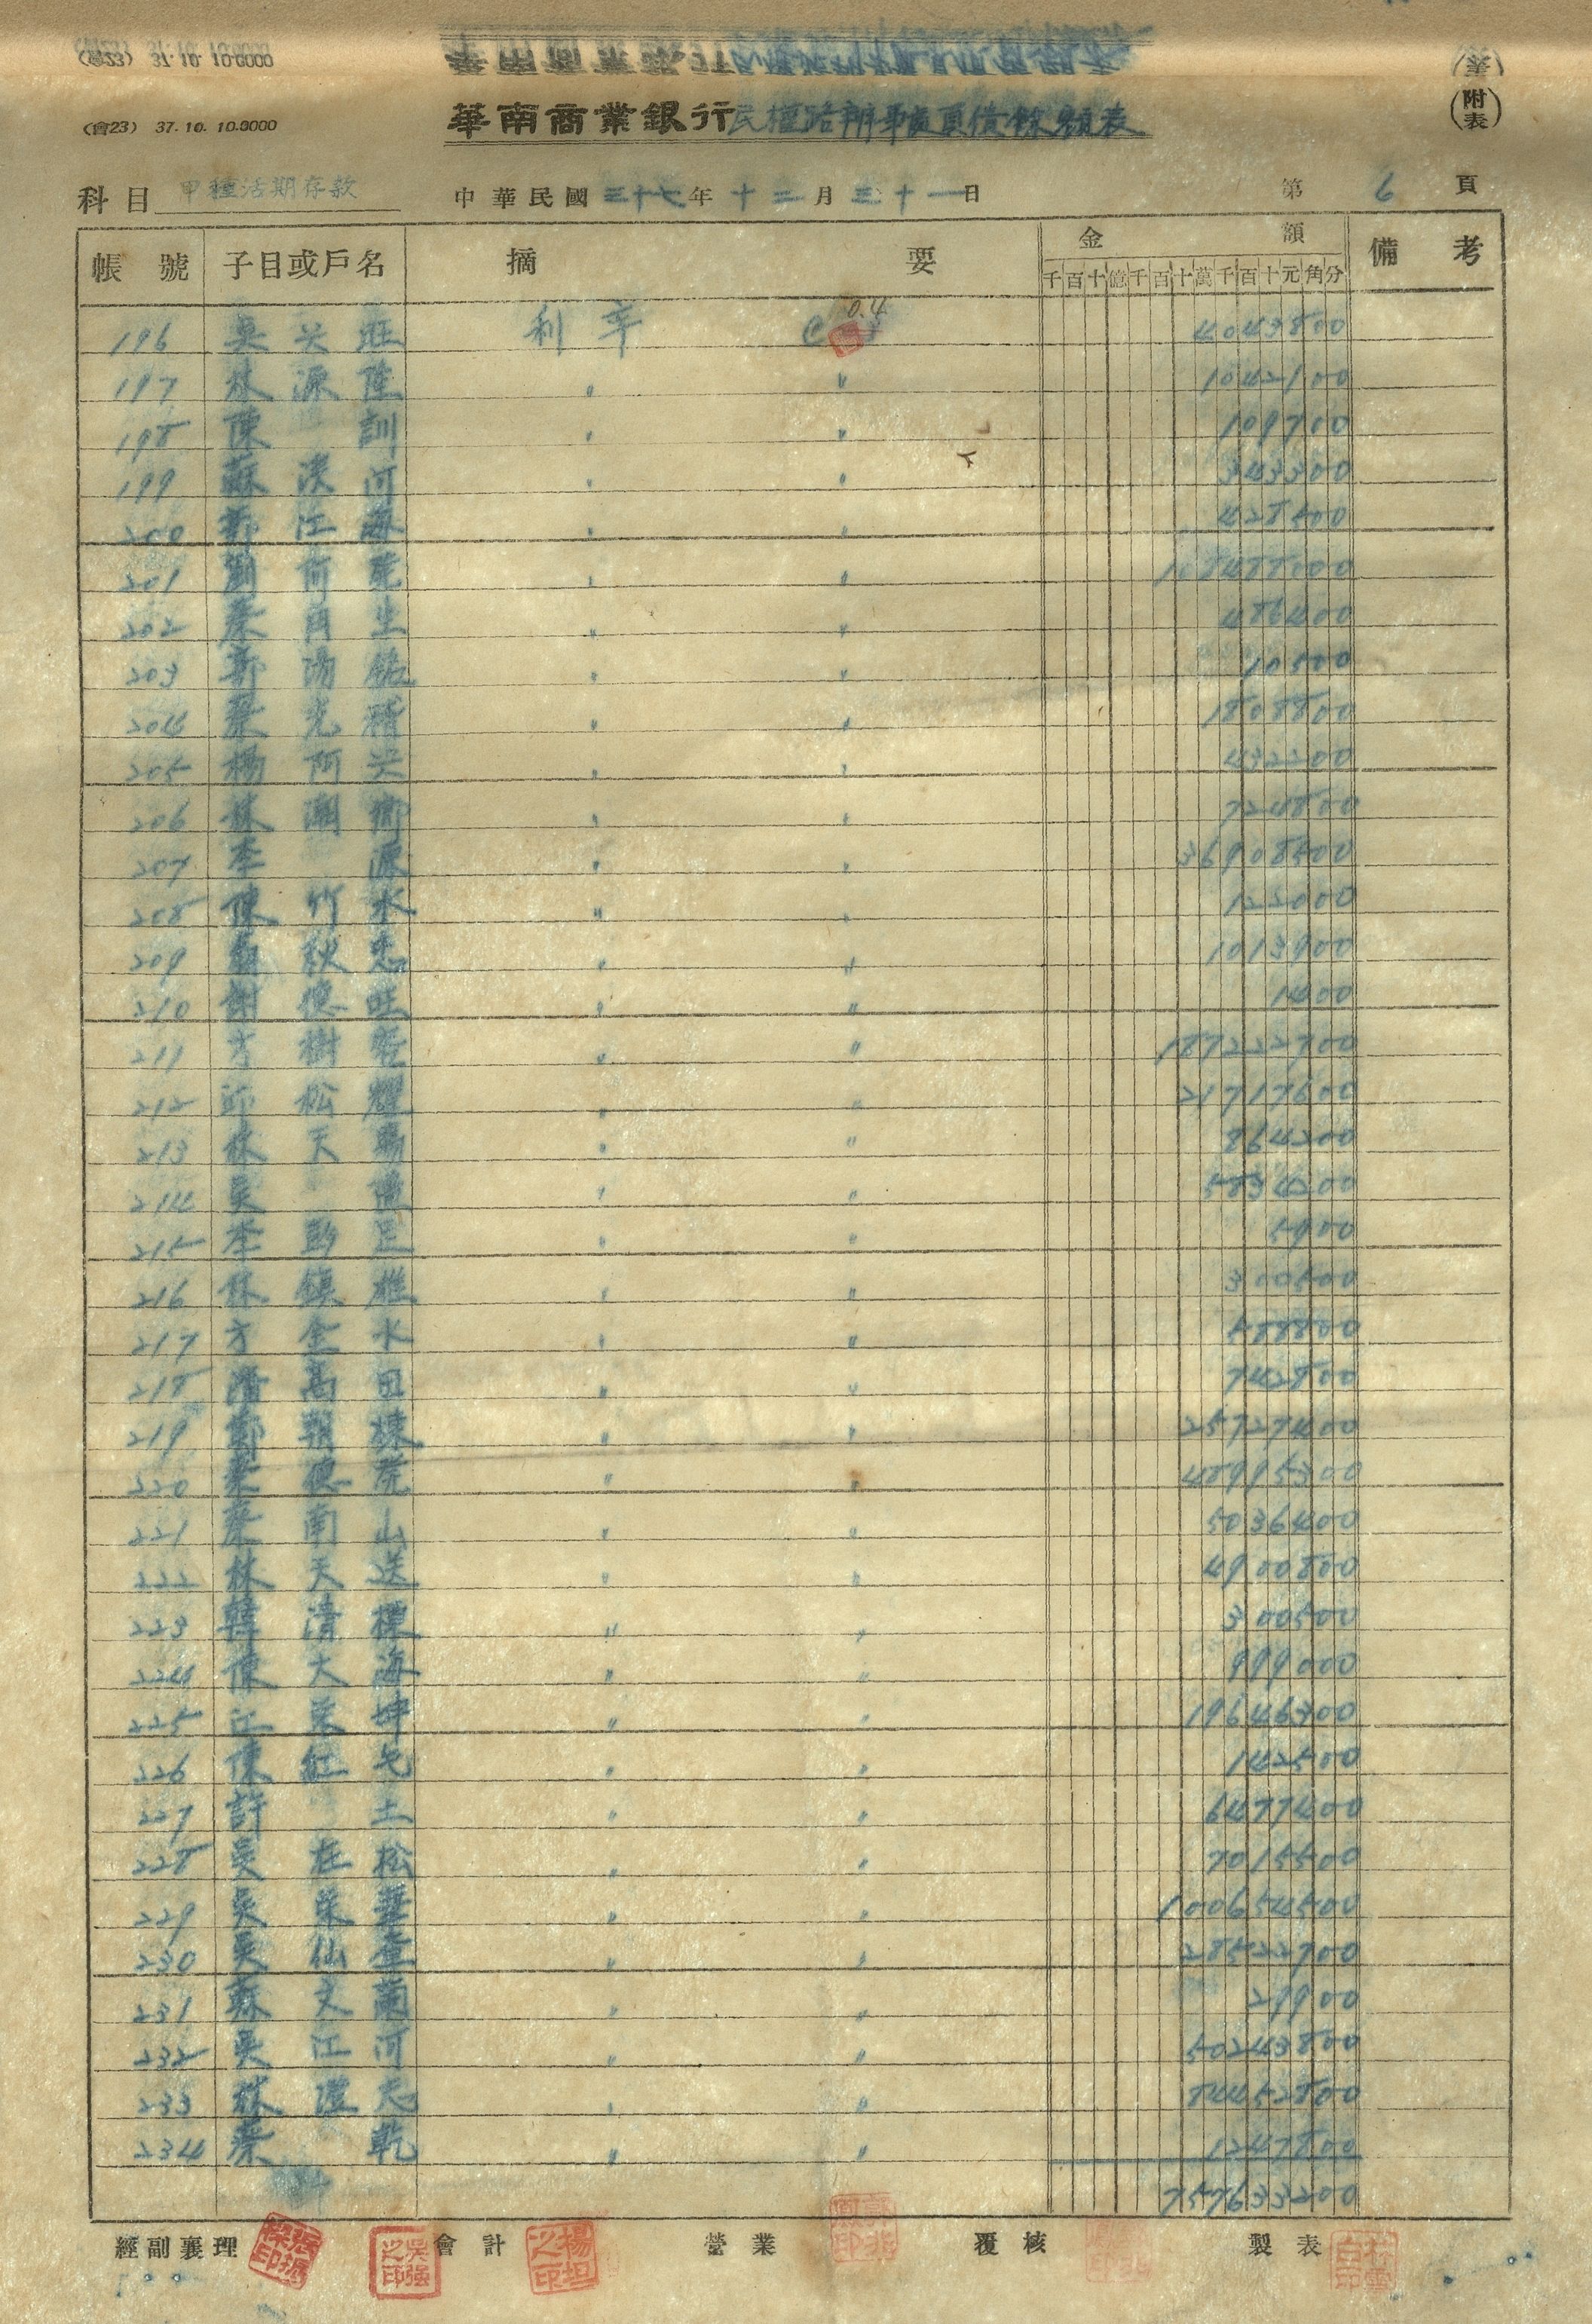 (會23) 37.10.10.0000
華南商業銀行民權路辦事處負債餘額表
(附表)
科目 甲種活期存款 中華民國三十七年十二月三十一日 第6頁
帳號 子目或戶名 摘要 金額 備考
千百十億千百十萬千百十元角分
196 吳 旺 利率 0.4 4043800
197 林源陸 〃 〃 1042100
198 陳訓 〃 〃 109700
199 蘇 河 〃 〃 343300
200 鄭江海 〃 〃 428500
201 劉 〃 〃 108488000
202 蔡 生 〃 〃 486400
203 郭 〃 〃 10500
204 蔡光 〃 〃 1808800
205 楊阿 〃 〃 432200
206 林 鄉 〃 〃 724800
207 李源 〃 〃 36908500
208 陳竹水 〃 〃 122000
209 秋 〃 〃 1013900
210 謝德旺 〃 〃 1400
211 方樹 〃 〃 187222700
212 邱松耀 〃 〃 21717600
213 林天賜 〃 〃 864200
214 吳 〃 〃 5834200
215 李 足 〃 〃 5900
216 林鎮雄 〃 〃 300500
217 方金水 〃 〃 588800
218 高田 〃 〃 742800
219 鄭朝棟 〃 〃 25727400
220 德虎 〃 〃 48995300
221 蔡南山 〃 〃 5036400
222 林天送 〃 〃 4900800
223 韓清標 〃 〃 300500
224 陳大海 〃 〃 999000
225 江榮坤 〃 〃 19646300
226 陳紅 〃 〃 142500
227 許土 〃 〃 6477400
228 吳在松 〃 〃 7015500
229 吳榮華 〃 〃 100654500
230 吳仙 〃 〃 28522700
231 蘇文蘭 〃 〃 29900
232 吳江河 〃 〃 50243800
233 林 〃 〃 84452800
234 蔡乾 〃 〃 1247800
757633200
經副襄理 會計 營業 覆核 製表